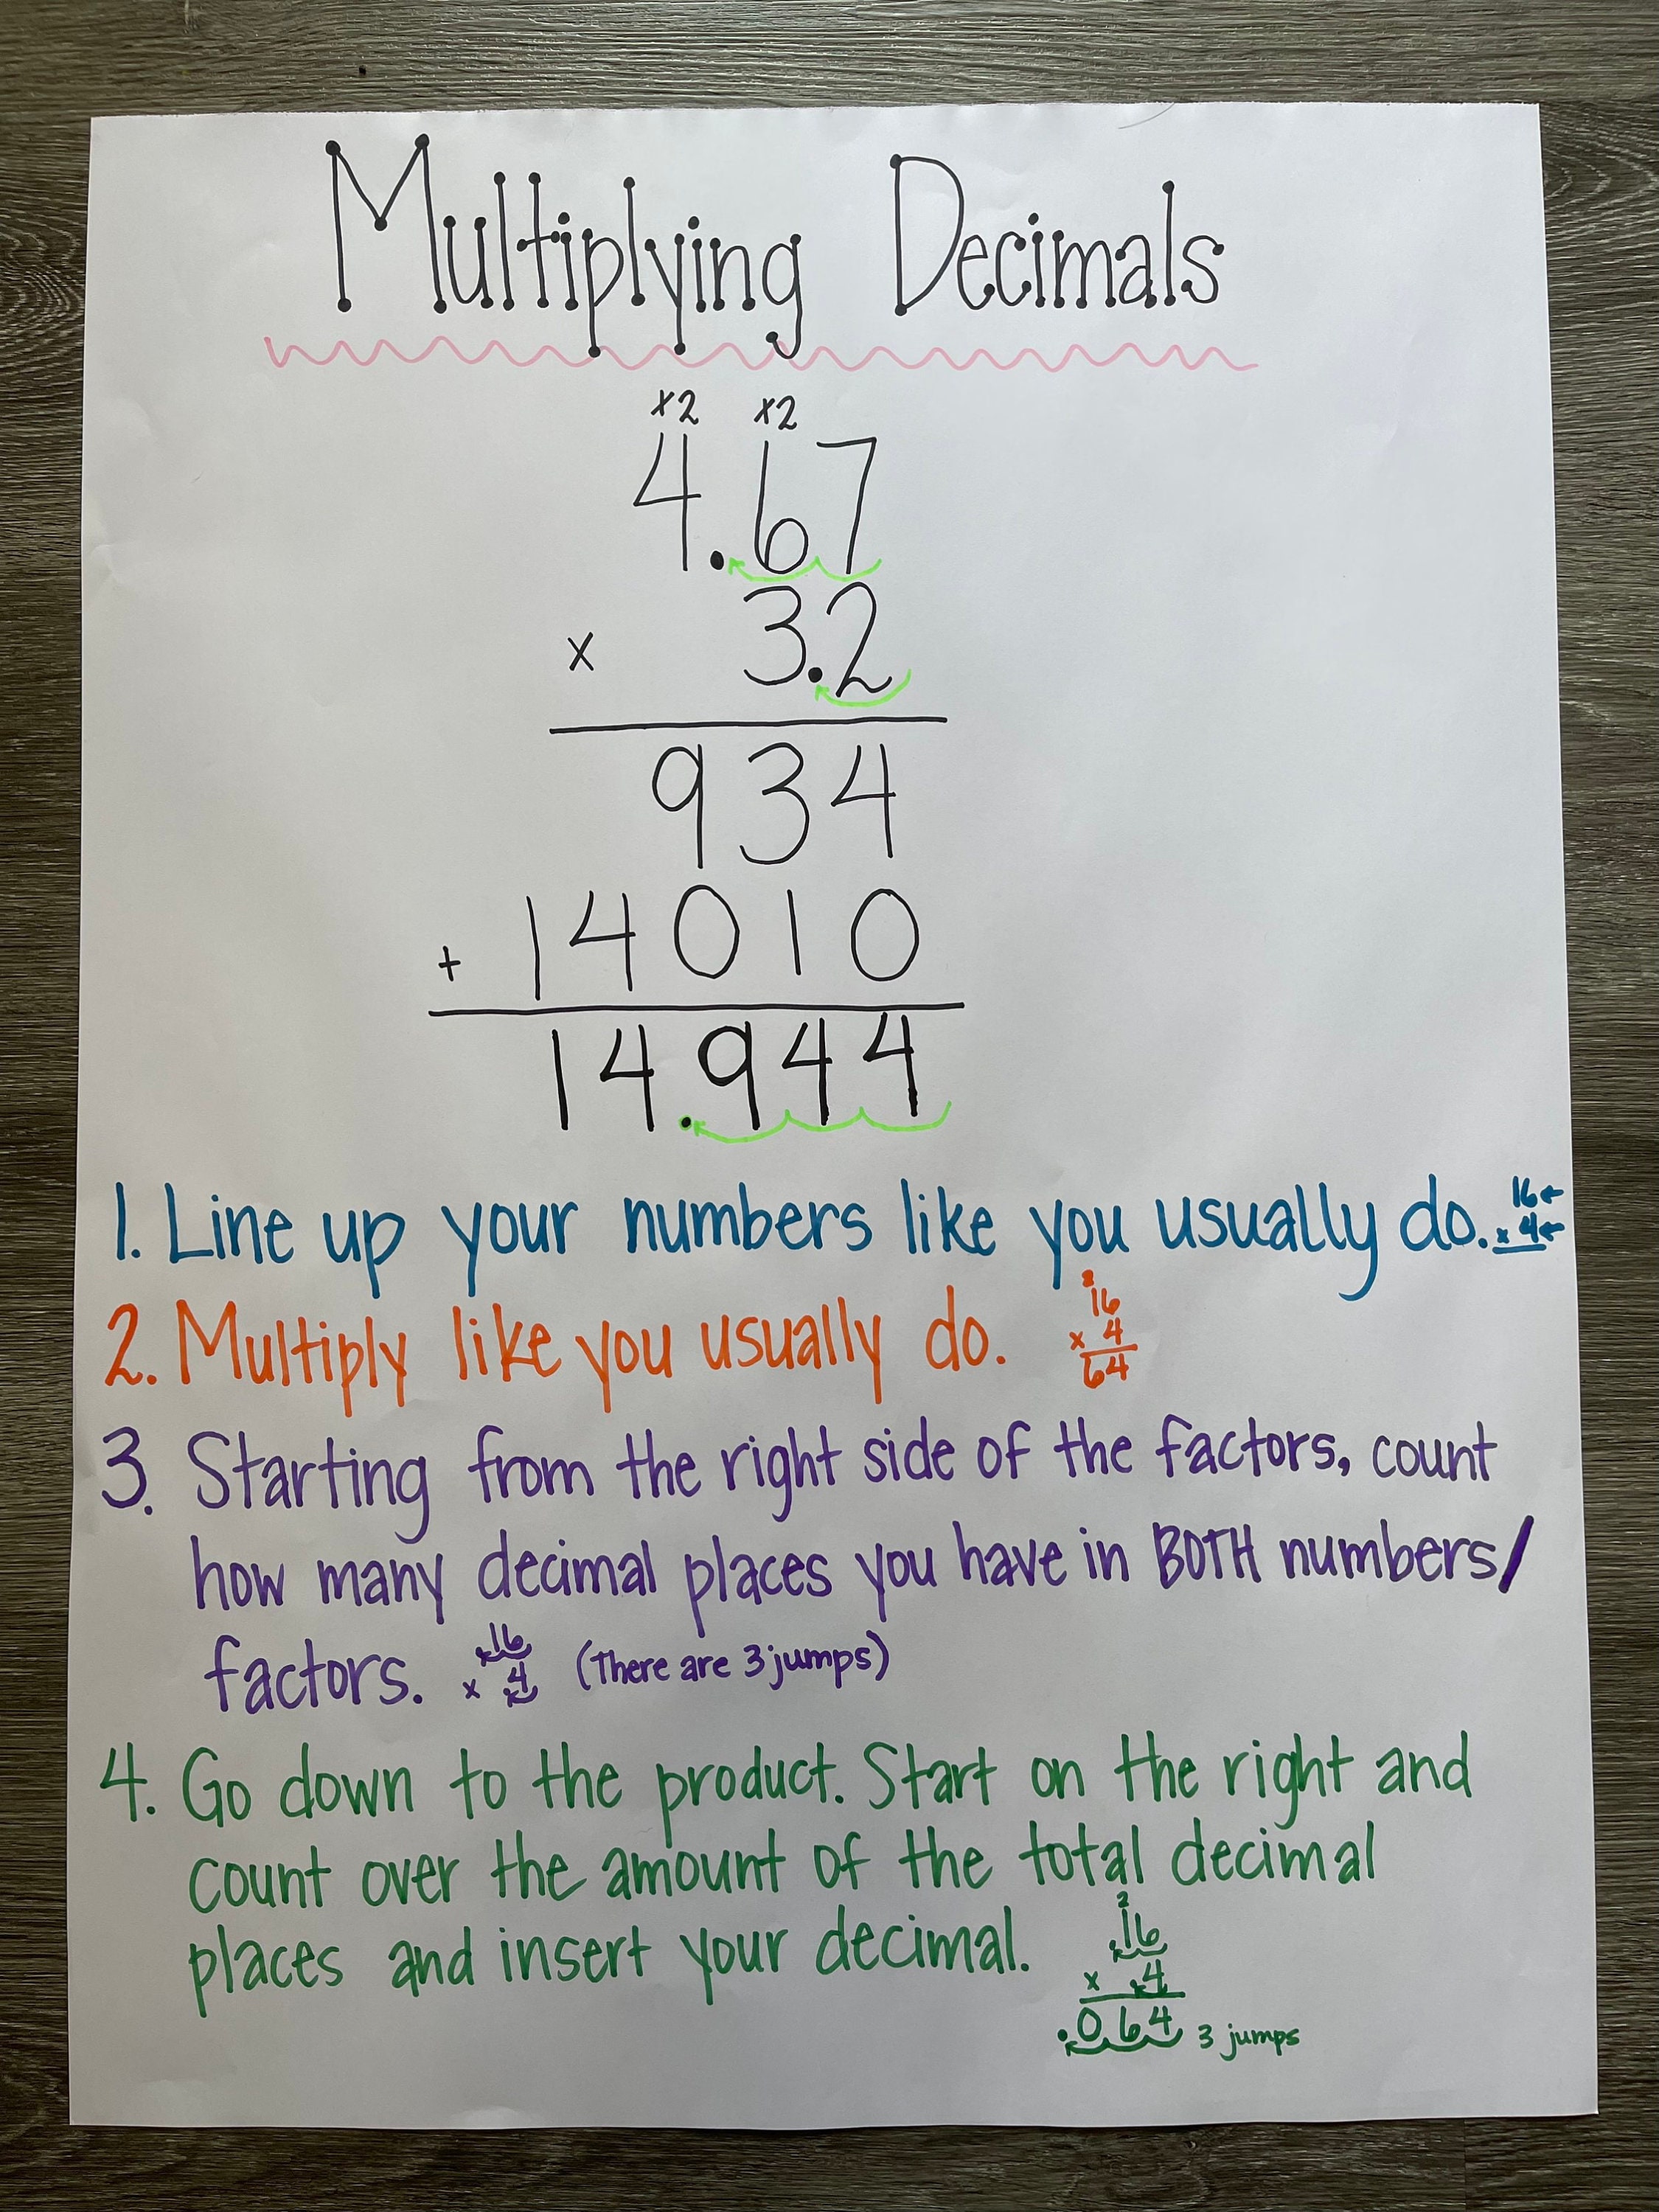 Multiplying Decimals
x2 x2
4.67
x 3.2
934
+ 14010
14.944
1. Line up your numbers like you usually do.
16
x 4
2. Multiply like you usually do.
16
x 4
64
3. Starting from the right side of the factors, count
how many decimal places you have in BOTH numbers/
factors.
.16
x .4
(There are 3 jumps)
4. Go down to the product. Start on the right and
count over the amount of the total decimal
places and insert your decimal.
2
.16
x .4
.064 3 jumps